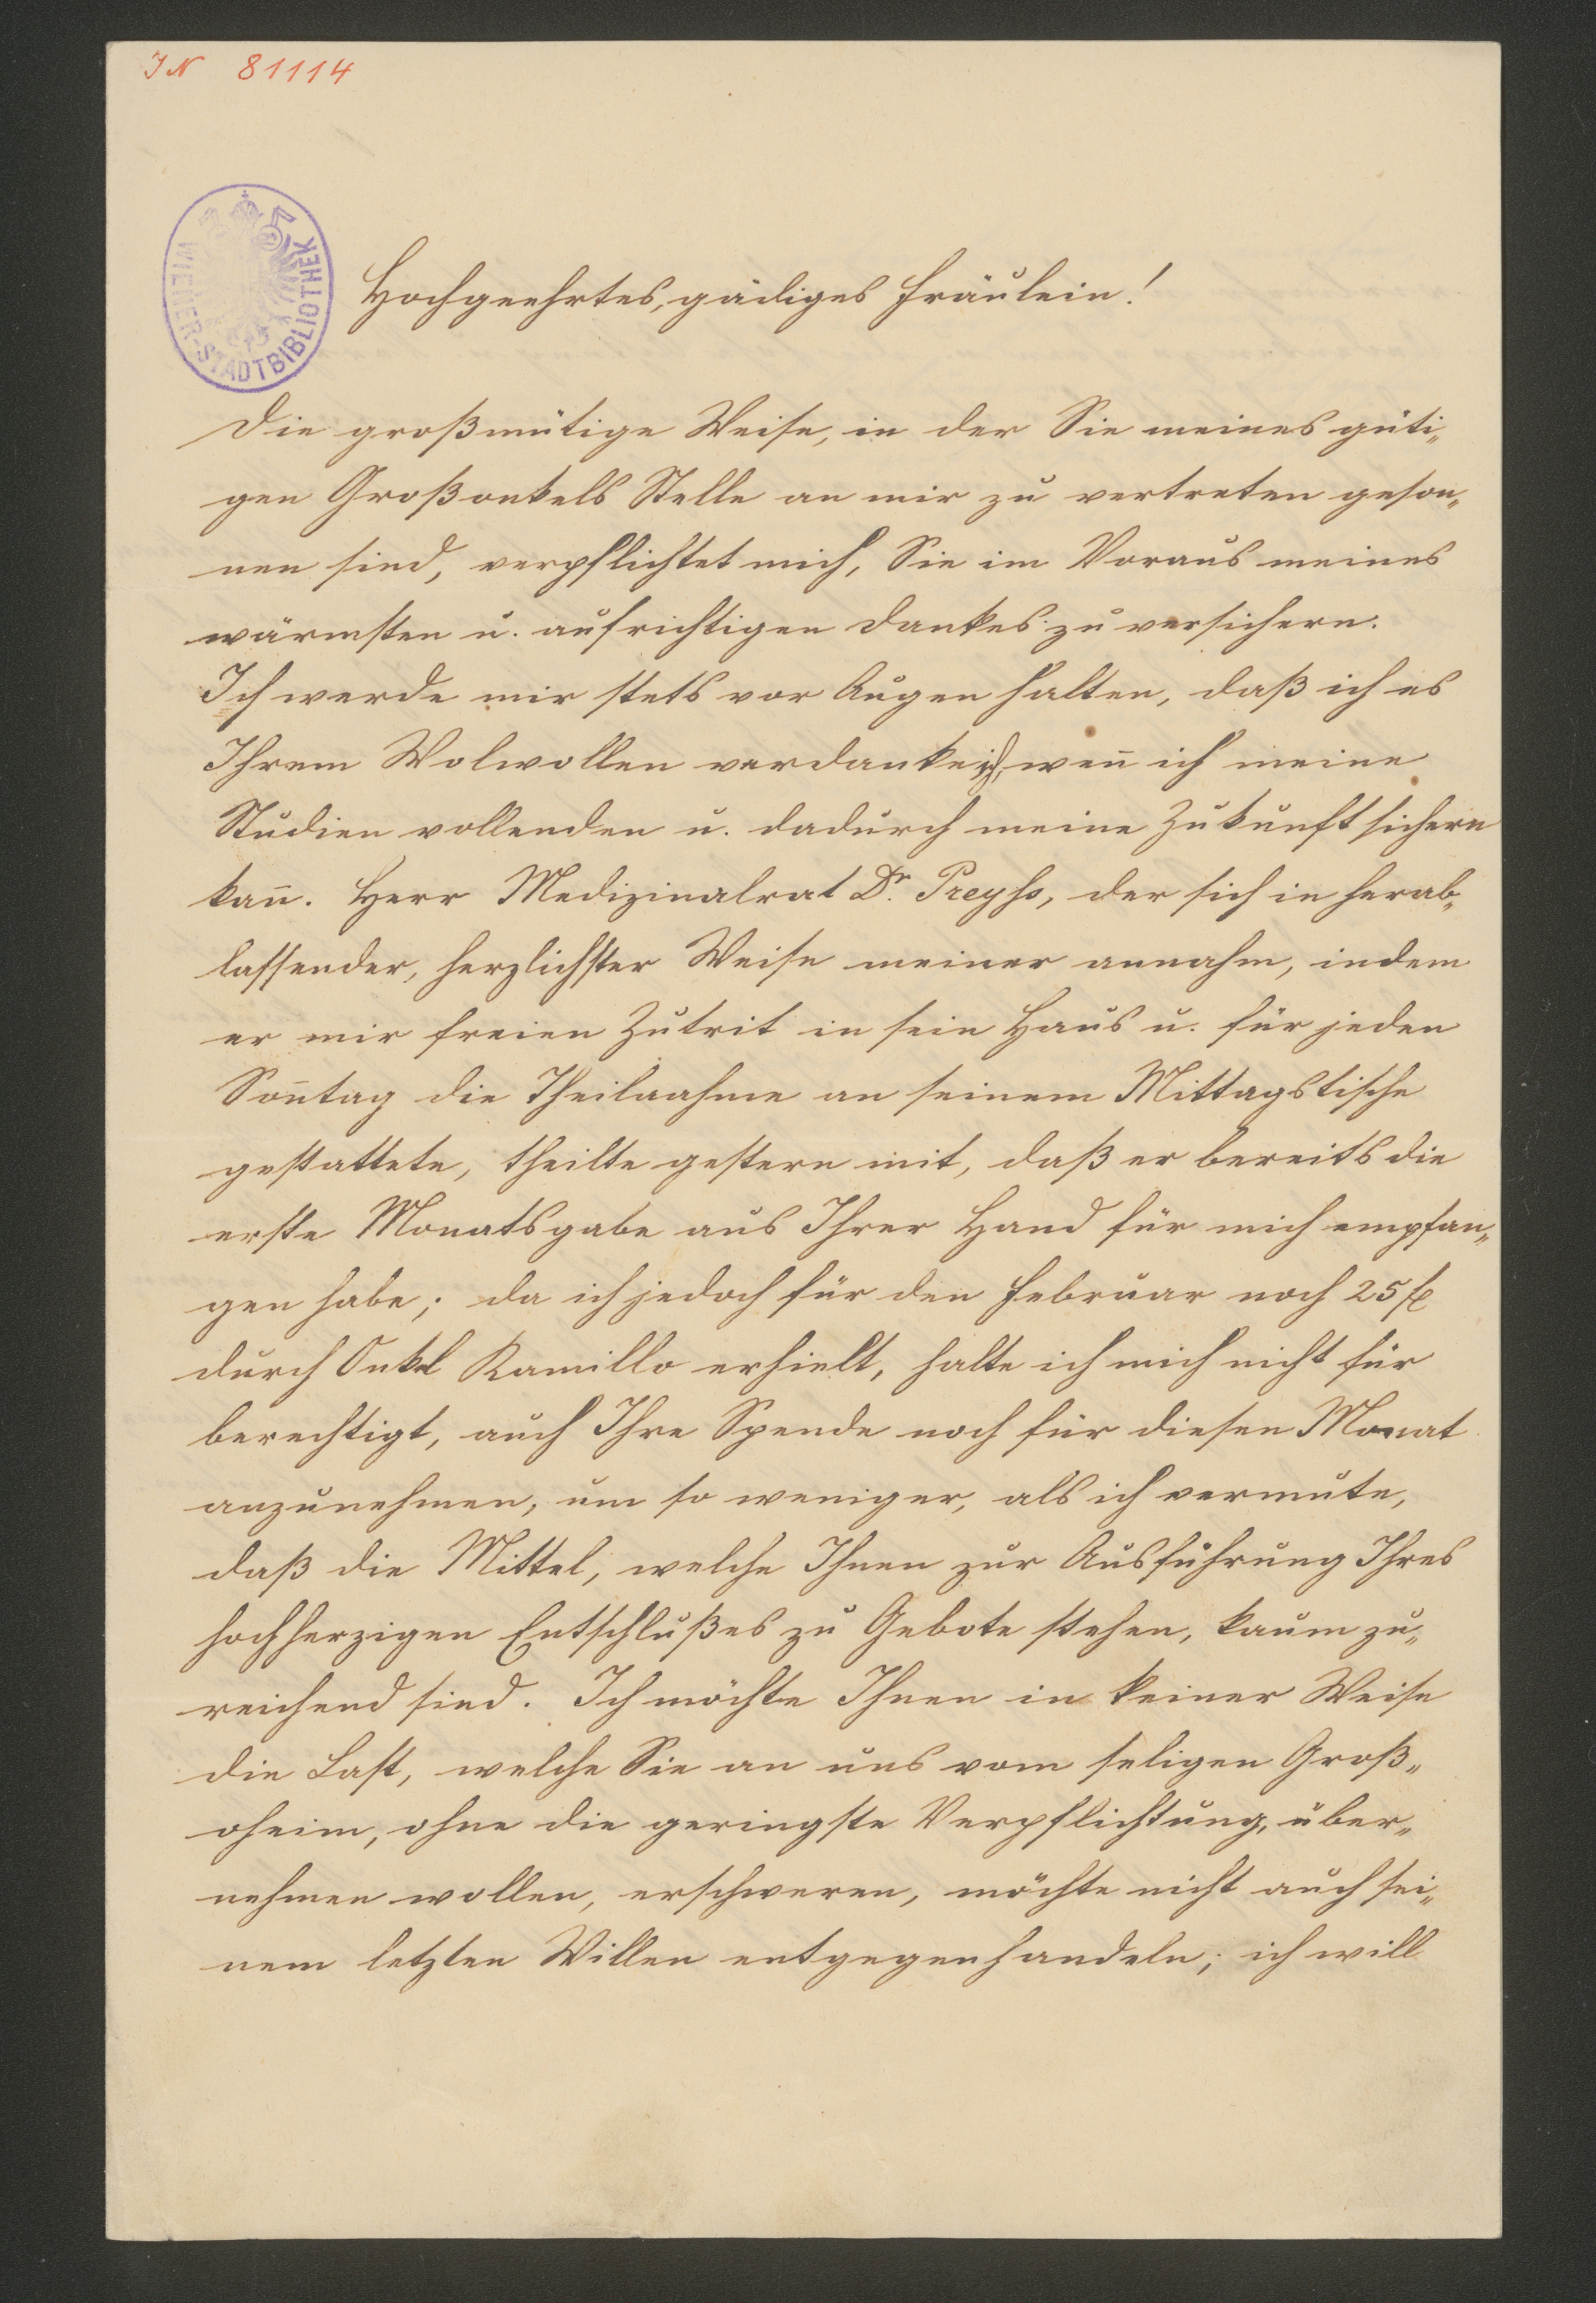 IN 81114
WIENER-STADTBIBLIOTHEK
Hochgeehrtes, gädiges Fräulein!
Die großmütige Weise, in der Sie meines güti„
gen Großonkels Stelle an mir zu vertreten geson„
nen sind, verpflichtet mich, Sie im Voraus meines
wärmsten u. aufrichtigen Dankes zu versichern.
Ich werde mir stets vor Augen halten, daß ich es
Ihrem Wolwollen verdanke, wen̄ ich meine
Studien vollenden u. dadurch meine Zukunft sichern
kan̄. Herr Medizinalrat Dr. Preyss, der sich in herab„
lassender, herzlichster Weise meiner annahm, indem
er mir freien Zutrit in sein Haus u. für jeden
Son̄tag die Theilnahme an seinem Mittagstische
gestattete, theilte gestern mit, daß er bereits die
erste Monatsgabe aus Ihrer Hand für mich empfan„
gen habe; da ich jedoch für den Februar noch 25 fl
durch Onkel Kamillo erhielt, halte ich mich nicht für
berechtigt, auch Ihre Spende noch für diesen Monat
anzunehmen, um so weniger, als ich vermute,
daß die Mittel, welche Ihnen zur Ausführung Ihres
hochherzigen Entschlußes zu Gebote stehen, kaum zu„
reichend sind. Ich möchte Ihnen in keiner Weise
die Last, welche Sie an uns vom seligen Groß„
oheim, ohne die geringste Verpflichtung, über„
nehmen wollen, erschweren, möchte nicht auch sei„
nem letzten Willen entgegenhandeln; ich will